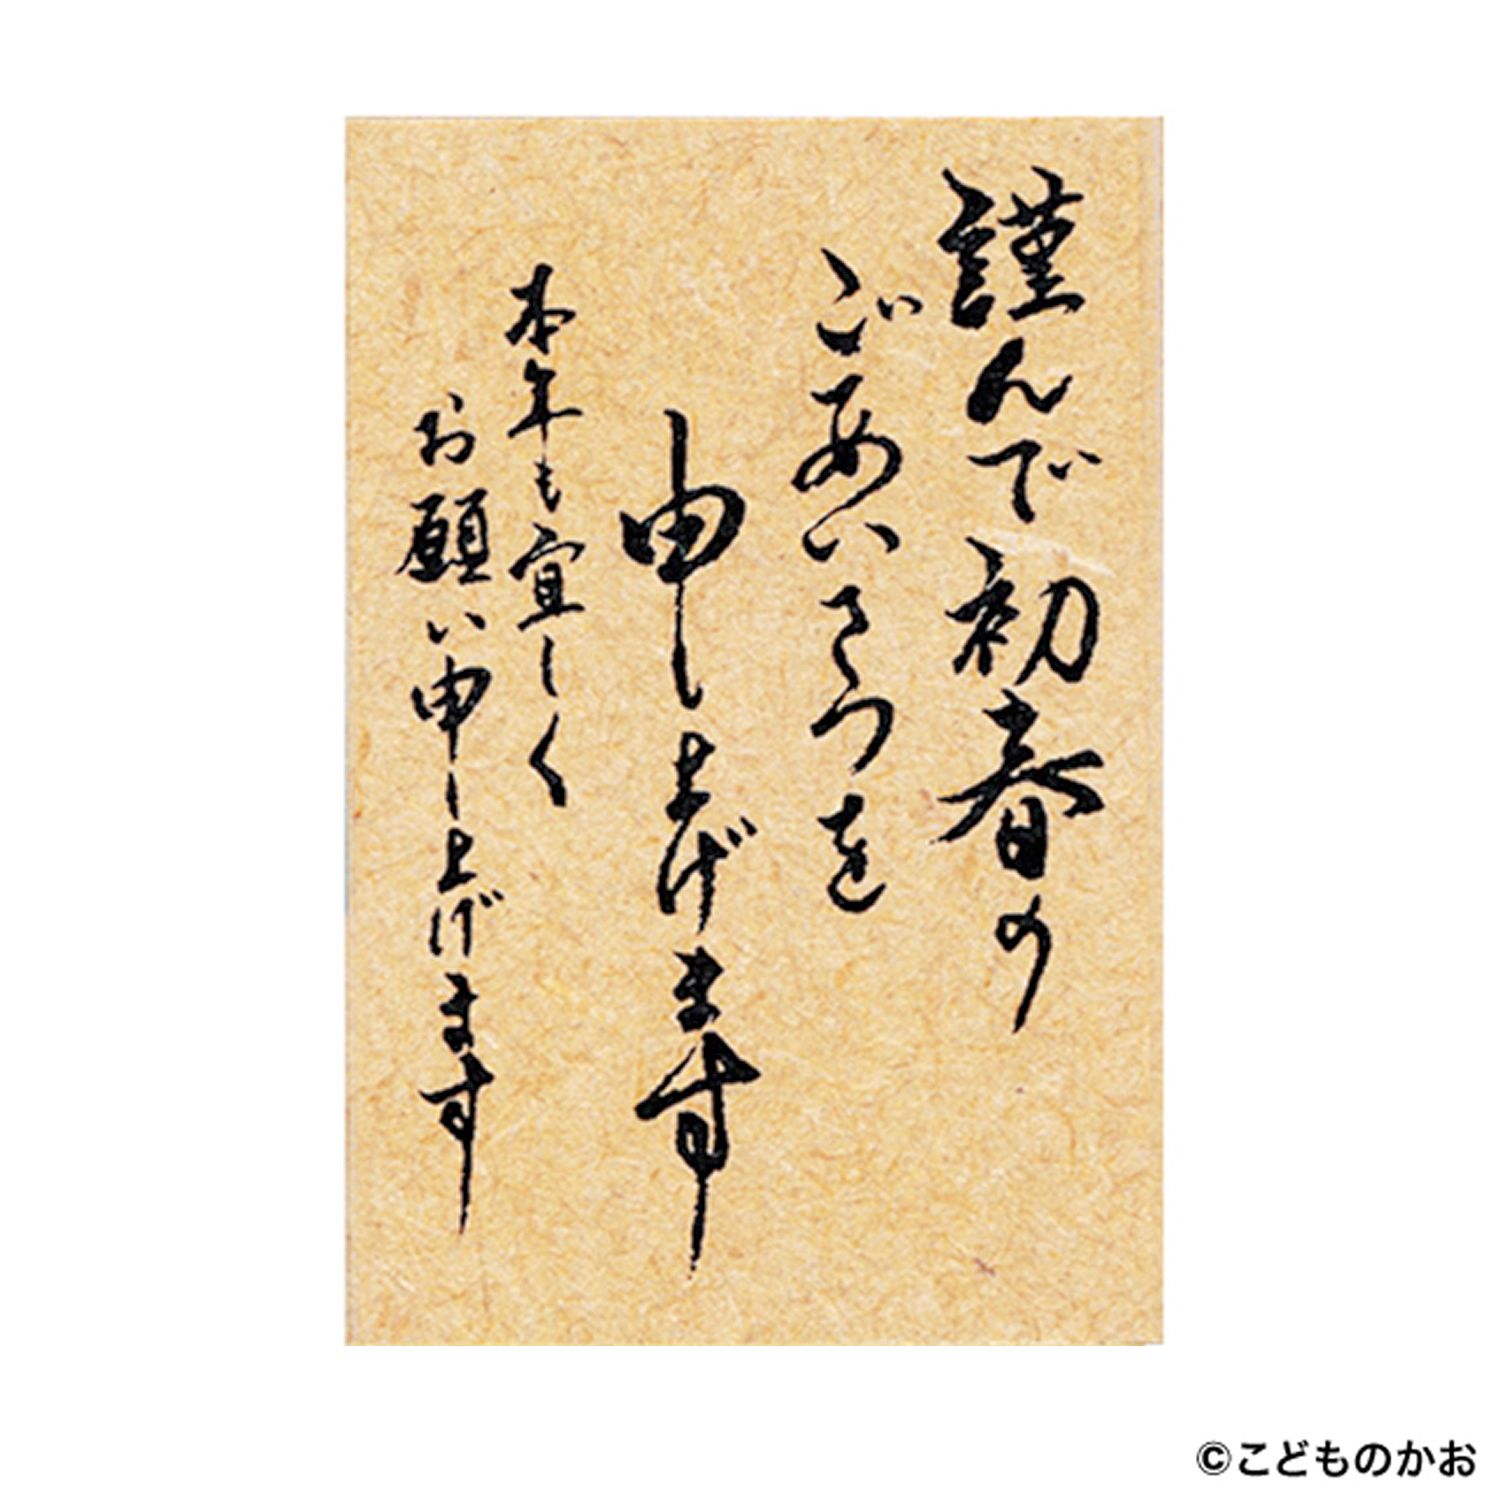 謹んで初春の
ごあいさつを
申し上げます
本年も宜しく
お願い申し上げます
©こどものかお